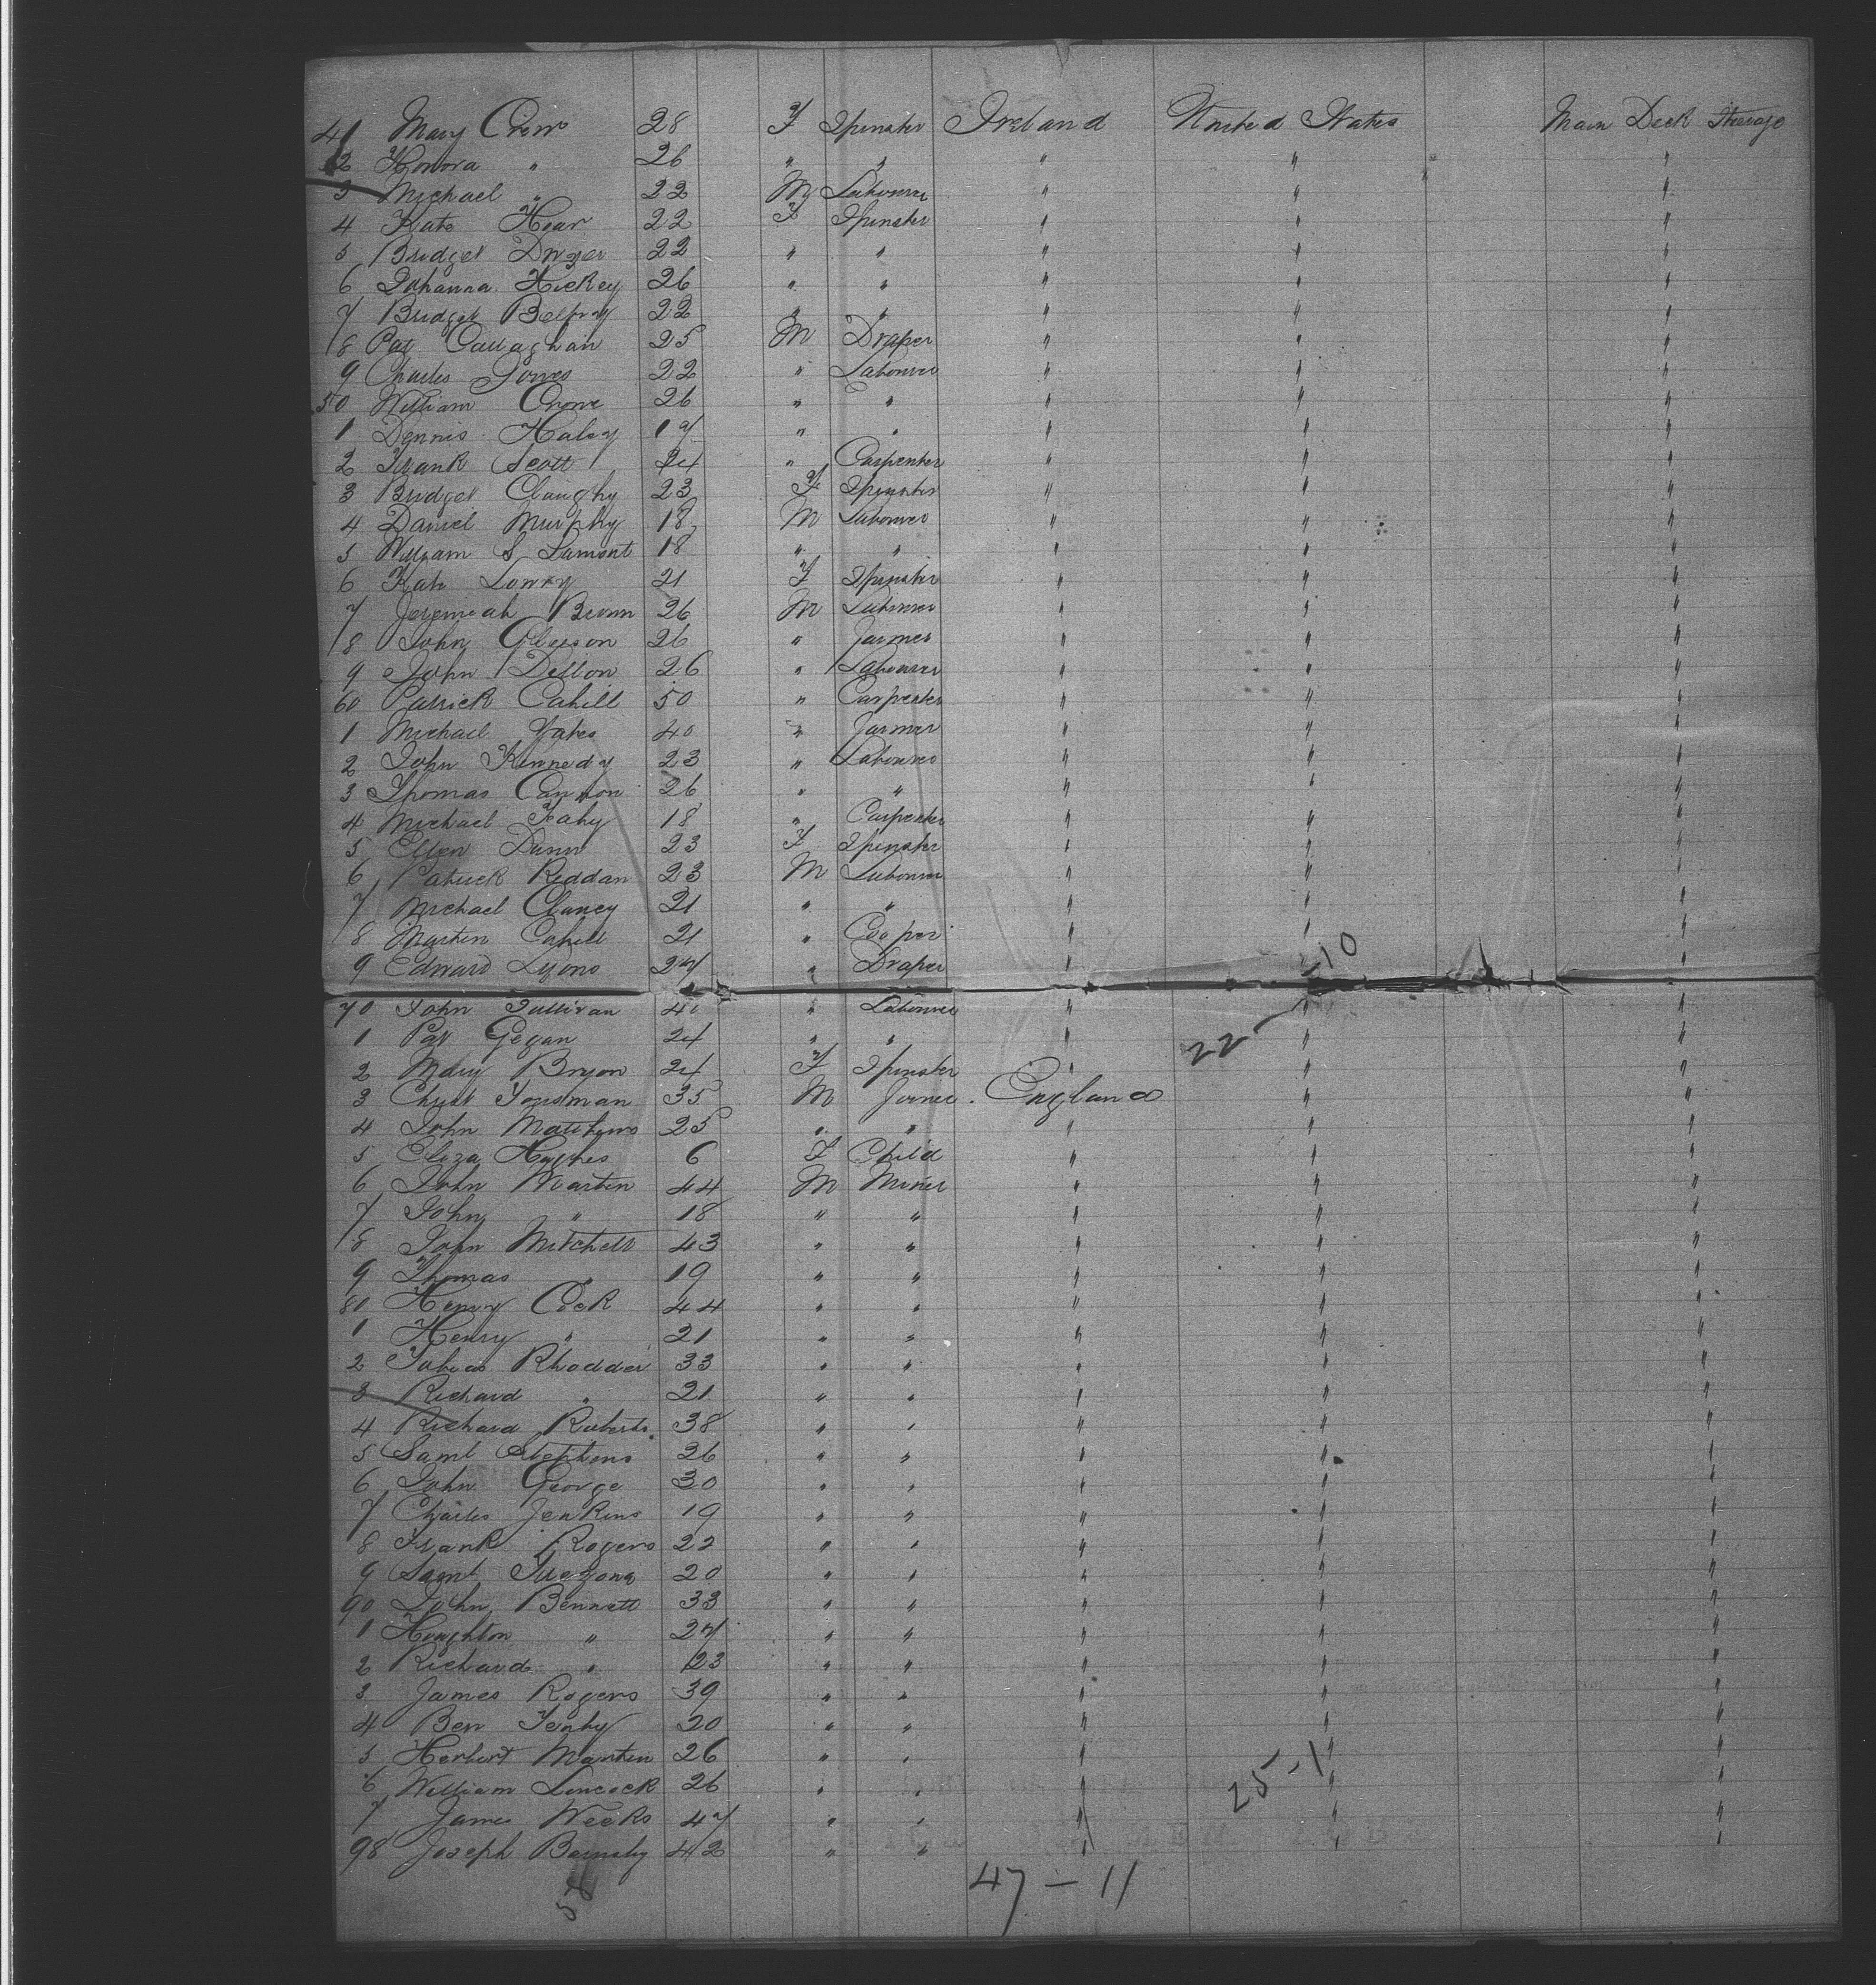 41 Mary Crow 28 F Spinster Ireland United States Main Deck Steerage
42 Honora " 26 " " " " "
3 Michael " 22 M Labourer " " "
4 Kate Hoar 22 F Spinster " " "
5 Bridget Dwyer 22 " " " " "
6 Johanna Hickey 26 " " " " "
7 Bridget 22 " " " " "
8 Pat Callaghan 25 M Draper " " "
9 Charles Jones 22 " Labourer " " "
50 William Crowe 26 " " " " "
1 Dennis Haley 19 " " " " "
2 Frank Scott 24 " Carpenter " " "
3 Bridget Claughy 23 F Spinster " " "
4 Daniel Murphy 18 M Labourer " " "
5 William S Lamont 18 " " " " "
6 Kate Lowry 21 F Spinster " " "
7 Jeremiah 26 M Labourer " " "
8 John Gleeson 26 " Farmer " " "
9 John Dillon 26 " Labourer " " "
60 Patrick Cahill 50 " Carpenter " " "
1 Michael Yates 40 " Farmer " " "
2 John Kennedy 23 " Labourer " " "
3 Thomas Cannon 26 " " " " "
4 Michael Fahy 18 " Carpenter " " "
5 Ellen Dunn 23 F Spinster " " "
6 Patrick Reddan 23 M Labourer " " "
7 Michael Clancy 21 " " " " "
8 Martin Cahill 21 " Cooper " " "
9 Edward Lyons 27 " Draper " " "
22 - 10
70 John Sullivan 40 " Labourer " " "
1 Pat Gegan 24 " " " " "
2 Mary Bryon 24 F Spinster " " "
3 Christ Yousman 35 M Joiner England " "
4 John Matthews 25 " " " " "
5 Eliza Hughes 6 F Child " " "
6 John Martin 44 M Miner " " "
7 John " 18 " " " " "
8 John Mitchell 43 " " " " "
9 Thomas " 19 " " " " "
80 Henry Cock 44 " " " " "
1 Henry " 21 " " " " "
2 Tobias Rhodder 33 " " " " "
3 Richard " 21 " " " " "
4 Richard Roberts 38 " " " " "
5 Saml Stephens 26 " " " " "
6 John George 30 " " " " "
7 Charles Jenkins 19 " " " " "
8 Frank Rogers 22 " " " " "
9 Saml 20 " " " " "
90 John Bennett 33 " " " " "
1 Houghton " 27 " " " " "
2 Richard " 23 " " " " "
3 James Rogers 39 " " " " "
4 Ben Tenby 20 " " " " "
5 Herbert Martin 26 " " " " "
25 - 1
6 William Lincock 26 " " " " "
7 James Weeks 47 " " " " "
98 Joseph Barnaby 42 " " " " "
47 - 11
58